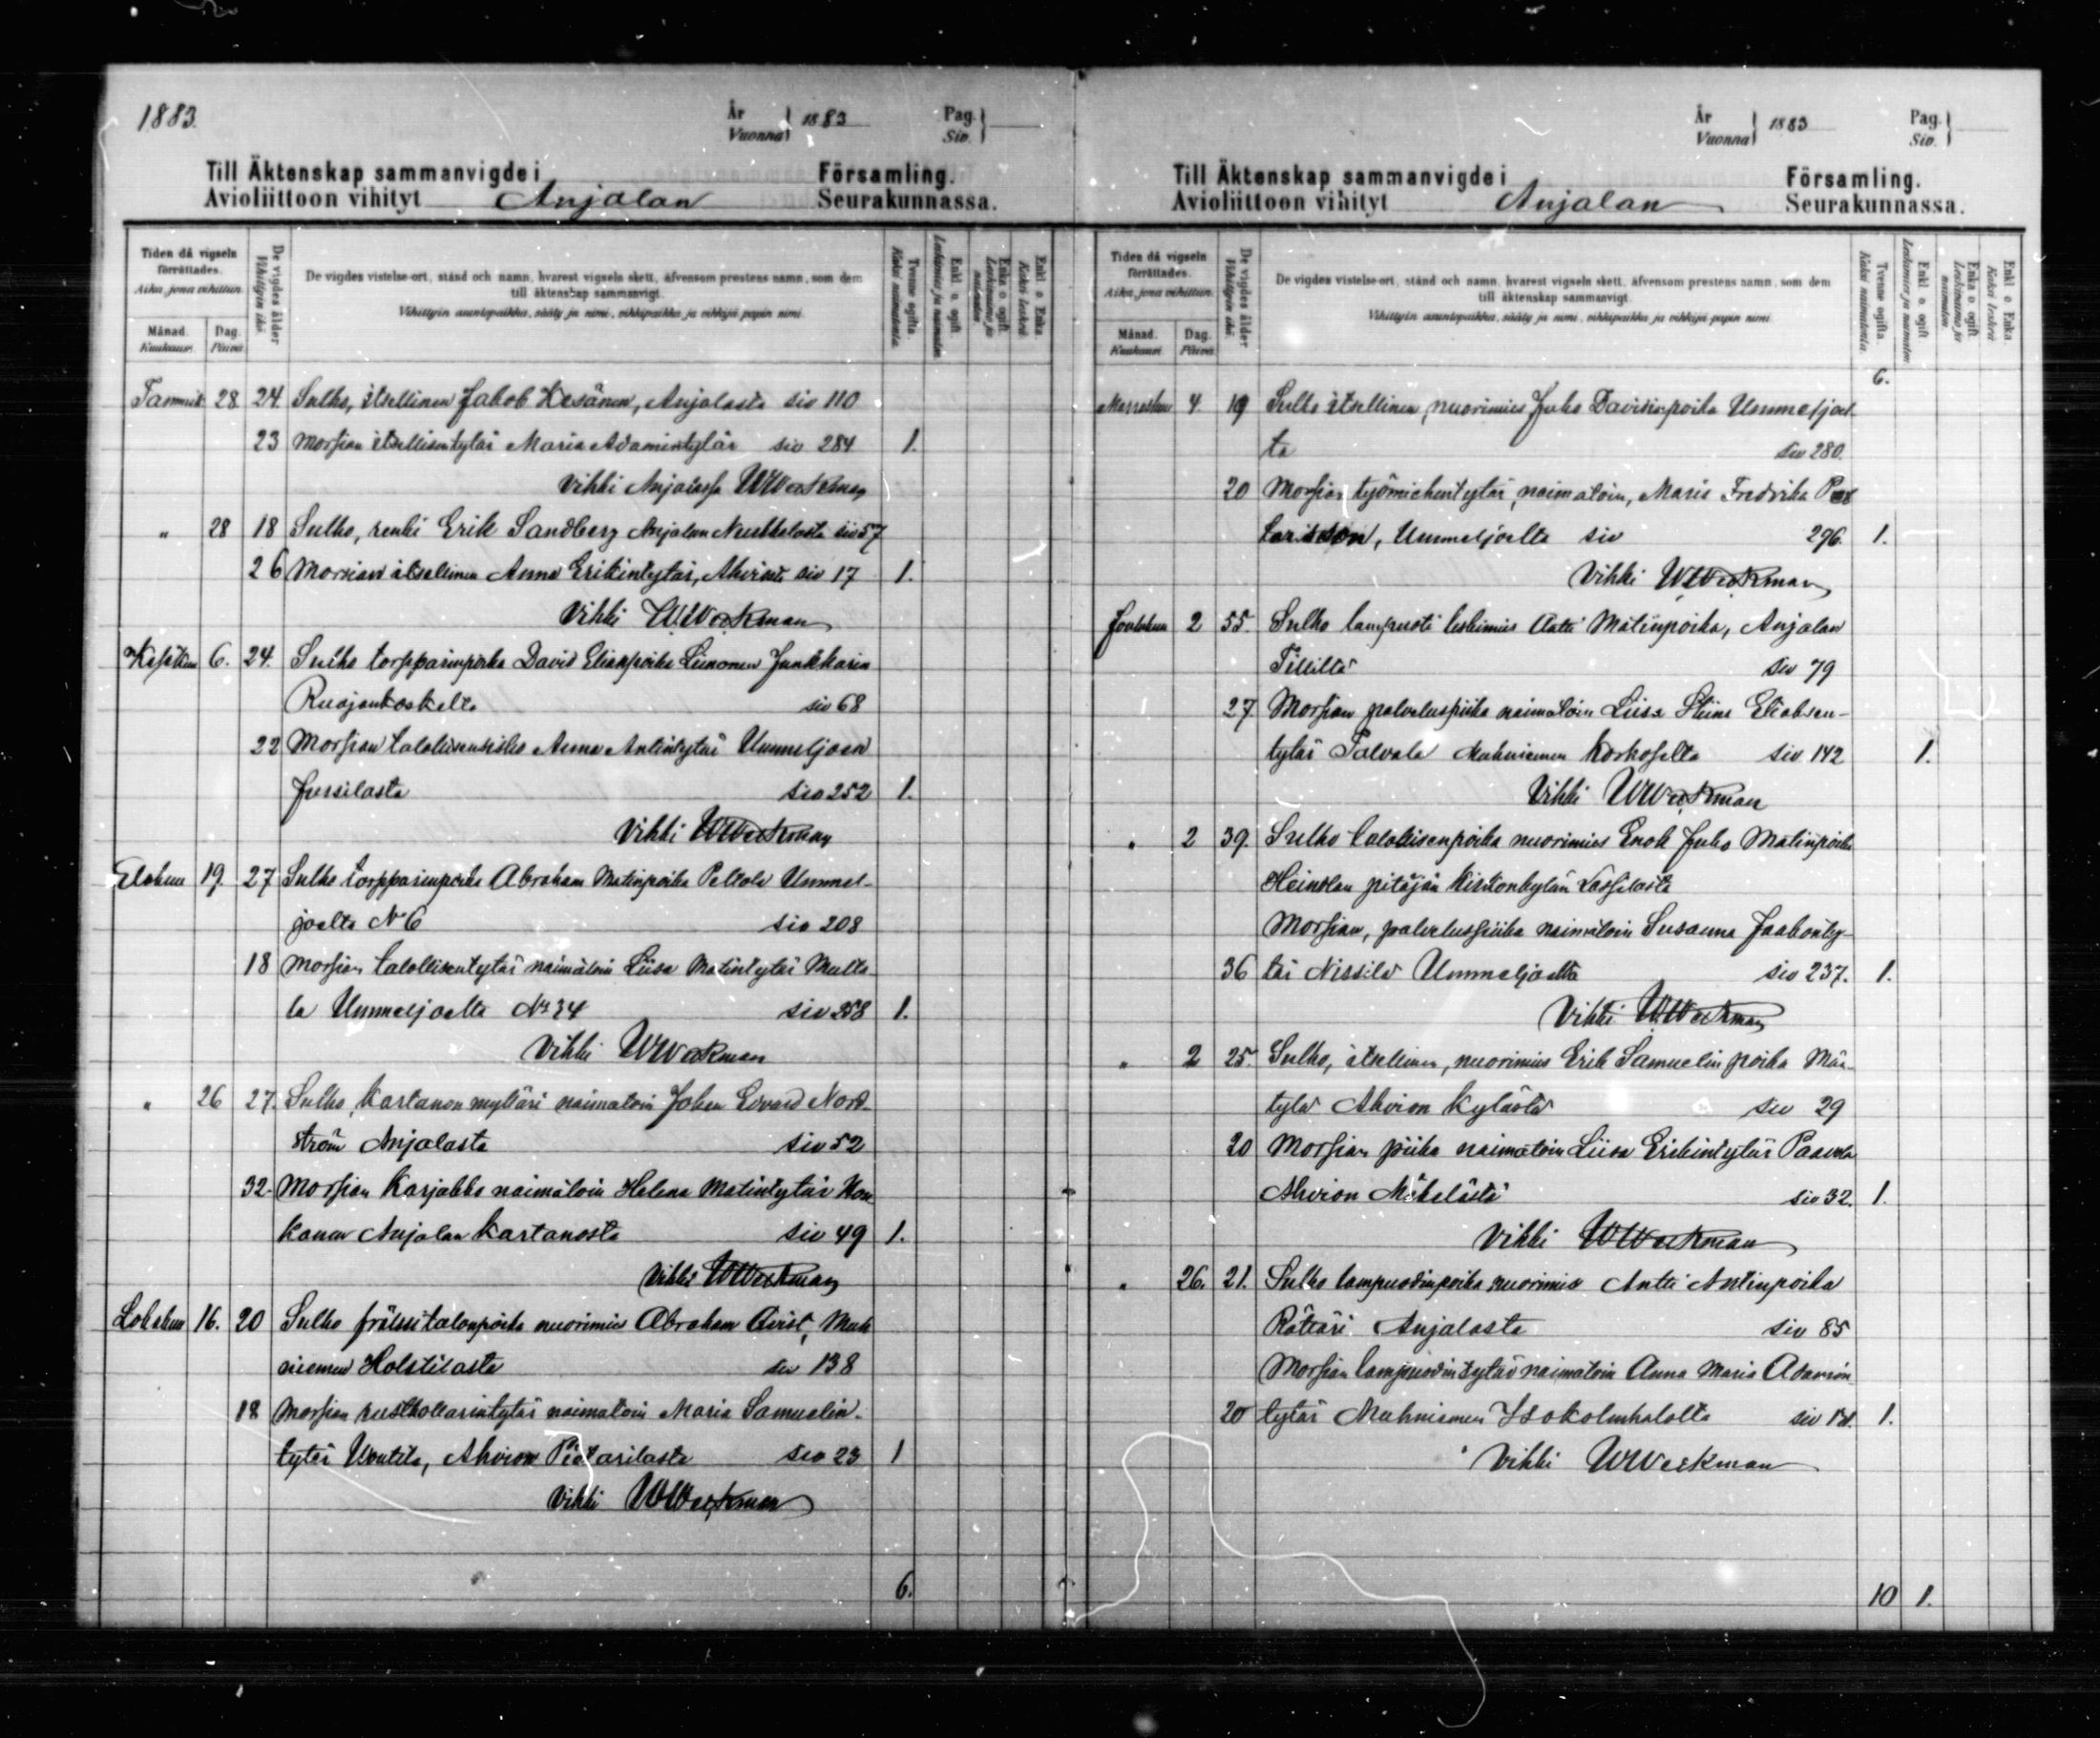 1883.
År
Vuonna 1883
Pag.
Siv.
Till Äktenskap sammanvigde i Församling.
Avioliittoon vihityt Anjalan Seurakunnassa.
Tiden då vigseln förrättades.
Aika, jona vihittiin.
Månad. Kuukausi.
Dag. Päivä.
De vigdes ålder
Vihittyin ikä.
De vigdes vistelse-ort, stånd och namn, hvarest vigseln skett, äfvensom prestens namn, som dem
till äktenskap sammanvigt.
Vihittyin asuntopaikka, sääty ja nimi, vihkipaikka ja vihkijä papin nimi.
Tvenne ogifta.
Kaksi naimatonta.
Enkl. o. ogift.
Leskimies ja naimaton.
Enka o. ogift.
Leskivaimo ja naimaton.
Enkl. o. Enka.
Kaksi leskeä.
Tammik 28 24. Sulho, itsellinen Jakob Kesänen, Anjalasta siv 110
23 Morsian itsellisentytär Maria Adamintytär siv 284 1.
Vihki Anjalassa WWeckman
" 28 18 Sulho, renki Erik Sandberg Anjalan siv 57
26 Morsian itsellinen Anna Erikintytär, siv 17 1.
Vihki WWeckman
Kesäkuu 6. 24. Sulho torpparinpoika David Eliaspoika Liimonen Junkkarin
siv 68
22 Morsian talollisensisko Anna Antintytär Ummeljoen
Jussilasta siv 252 1.
Vihki WWeckman
Elokuu 19. 27 Sulho torpparinpoika Abraham Matinpoika Peltola Ummel-
joelta No 6 siv 208
18 Morsian talollisentytär naimatoin Liisa Matintytär Matta
la Ummeljoelta No 34 siv 258 1.
Vihki WWeckman
" 26 27. Sulho, Kartanon mylläri naimatoin Johan Edvard Nord-
ström Anjalasta siv 52
32. Morsian Karjakko naimatoin Helena Matintytär Kon
kanen Anjalan Kartanosta siv 49 1.
Vihki WWeckman
Lokakuu 16. 20 Sulho frälssitalonpoika nuorimies Abraham Qvist, Muh
niemen Holstilasta siv 138
18 Morsian rusthollarintytär naimatoin Maria Samuelin-
tytär Uutela, Ahvion Pietarilasta siv 23 1
Vihki WWeckman
6.
År
Vuonna 1883
Pag.
Siv.
Till Äktenskap sammanvigde i Församling.
Avioliittoon vihityt Anjalan Seurakunnassa.
Tiden då vigseln förrättades.
Aika, jona vihittiin.
Månad. Kuukausi.
Dag. Päivä.
De vigdes ålder
Vihittyin ikä.
De vigdes vistelse-ort, stånd och namn, hvarest vigseln skett, äfvensom prestens namn, som dem
till äktenskap sammanvigt.
Vihittyin asuntopaikka, sääty ja nimi, vihkipaikka ja vihkijä papin nimi.
Tvenne ogifta.
Kaksi naimatonta.
Enkl. o. ogift.
Leskimies ja naimaton.
Enka o. ogift.
Leskivaimo ja naimaton.
Enkl. o. Enka.
Kaksi leskeä.
6.
Marraskuu 4. 19 Sulho itsellinen, nuorimies Juho Davidinpoika Ummeljoel
ta siv 280.
20 Morsian työmiehentytär, naimatoin, Maria Fredrika
Ummeljoelta siv 296. 1.
Vihki WWeckman
Joulukuu 2 55. Sulho lampuoti leskimies Antti Matinpoika, Anjalan
siv 79
27 Morsian palveluspiika naimatoin Liisa Stiina Eliaksen-
tytär Talvala Muhniemen Korhoselta siv 142 1.
Vihki WWeckman
" 2 39. Sulho talollisenpoika nuorimies Enok Juho Matinpoika
Heinolan pitäjän Kirkonkylän
Morsian, palveluspiika naimatoin Susanna Jaakonty-
36 tär Nissilä Ummeljoelta siv 237. 1.
Vihki WWeckman
" 2 25. Sulho, itsellinen, nuorimies Erik Samuelin poika Män-
tylä Ahvion kylästä siv 29
20 Morsian piika naimatoin Liisa Erikintytär Paavola
Ahvion Mikelästä siv 32. 1.
Vihki WWeckman
" 26. 21. Sulho lampuodinpoika nuorimies Antti Antinpoika
Rättäri Anjalasta siv 85
Morsian lampuodintytär naimatoin Anna Maria Adamin
20 tytär Muhniemen siv 1.
Vihki WWeckman
10 1.